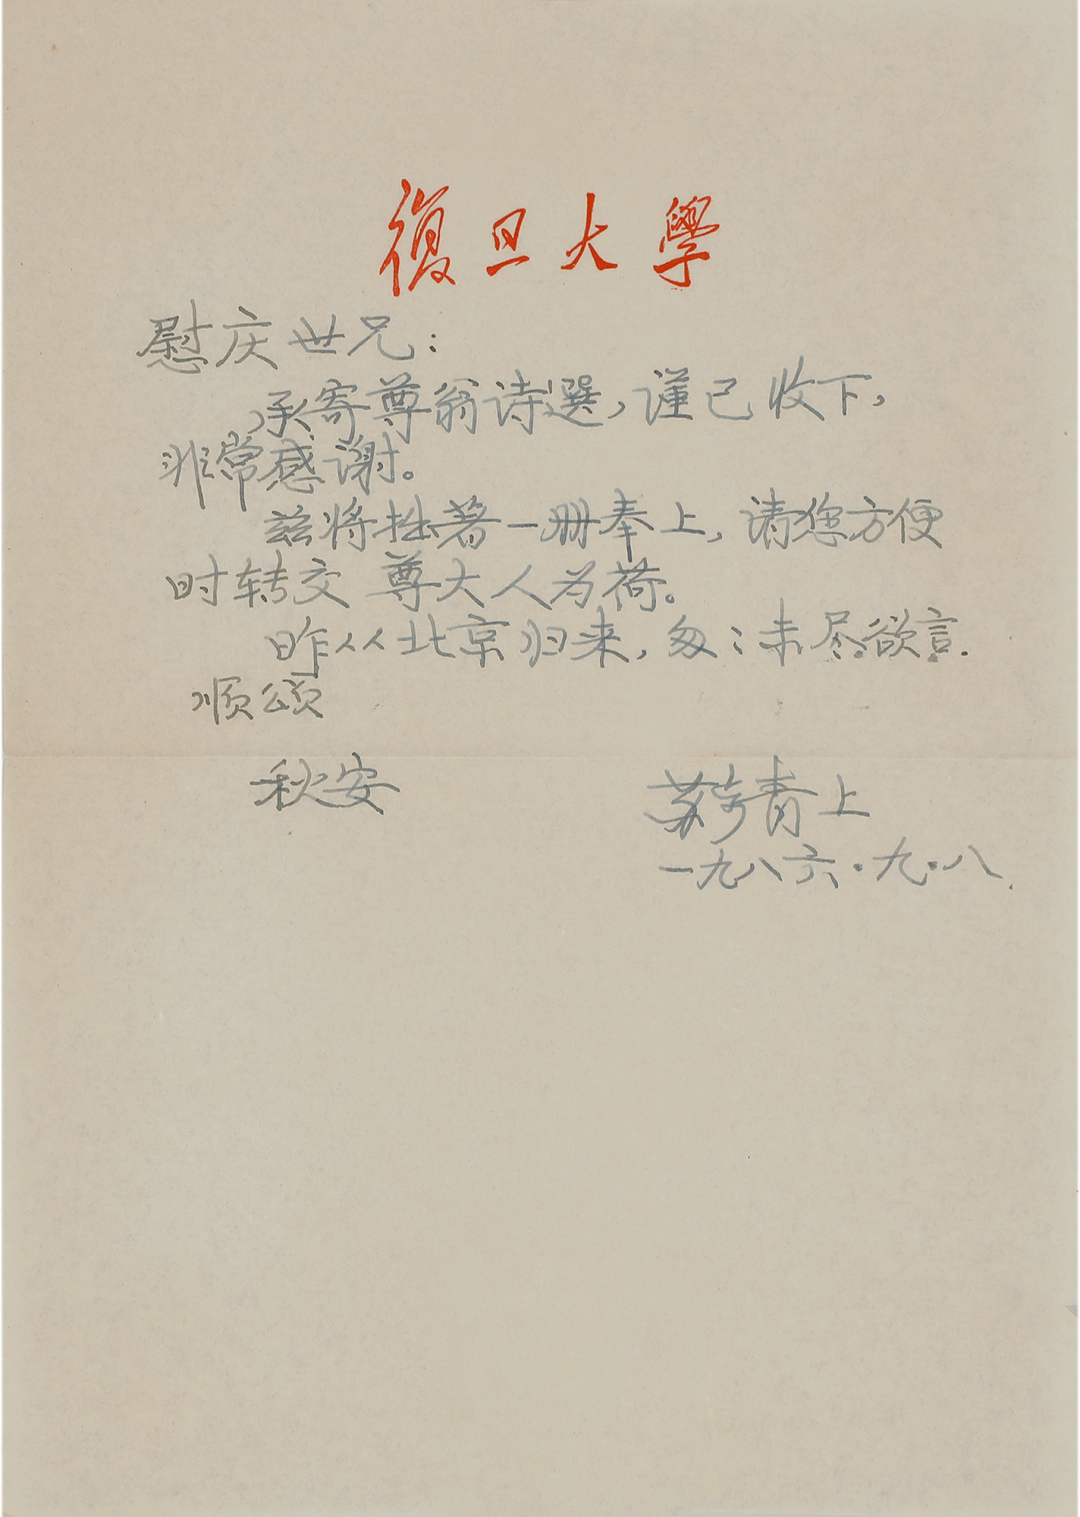 復旦大學
慰庆世兄：
承寄尊翁诗選，谨已收下，
非常感谢。
兹将拙著一册奉上，请您方便
时转交 尊大人为荷。
昨从北京归来，匆：未尽欲言．
顺颂
秋安
苏步青上
一九八六·九·八．